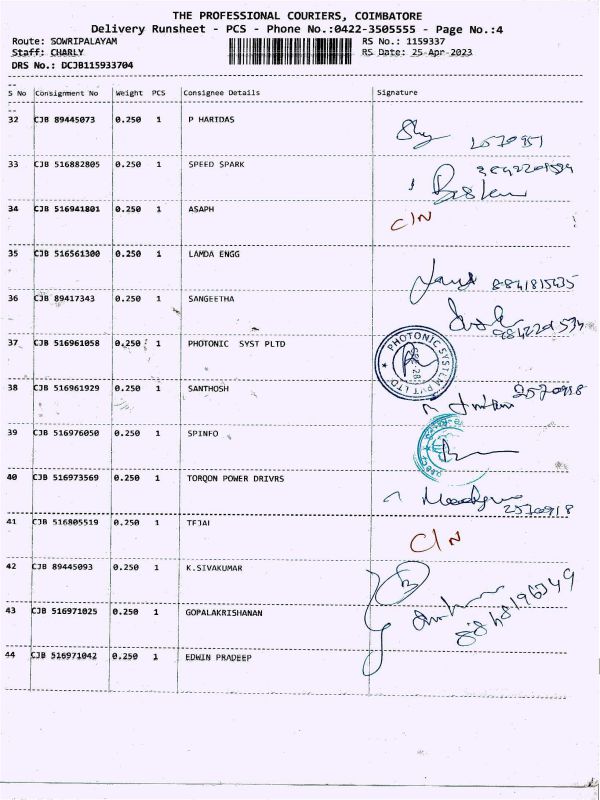 THE PROFESSIONAL COURIERS, COIMBATORE
Delivery Runsheet - PCS - Phone No.:0422-3505555 - Page No.:4
Route: SOWRIPALAYAM RS No.: 1159337
Staff: CHARLY RS Date: 25-Apr-2023
DRS No.: DCJB115933704
S No Consignment No Weight PCS Consignee Details Signature
32 CJB 89445073 0.250 1 P HARIDAS
2570951
33 CJB 516882805 0.250 1 SPEED SPARK
34 CJB 516941801 0.250 1 ASAPH C/N
35 CJB 516561300 0.250 1 LAMDA ENGG
36 CJB 89417343 0.250 1 SANGEETHA
37 CJB 516961058 0.250 1 PHOTONIC SYST PLTD
PHOTONIC SYSTEM PVT LTD
38 CJB 516961929 0.250 1 SANTHOSH 2570918
39 CJB 516976050 0.250 1 SPINFO
40 CJB 516973569 0.250 1 TORQON POWER DRIVRS
2570918
41 CJB 516805519 0.250 1 TEJAI C/N
42 CJB 89445093 0.250 1 K.SIVAKUMAR
43 CJB 516971025 0.250 1 GOPALAKRISHANAN
44 CJB 516971042 0.250 1 EDWIN PRADEEP